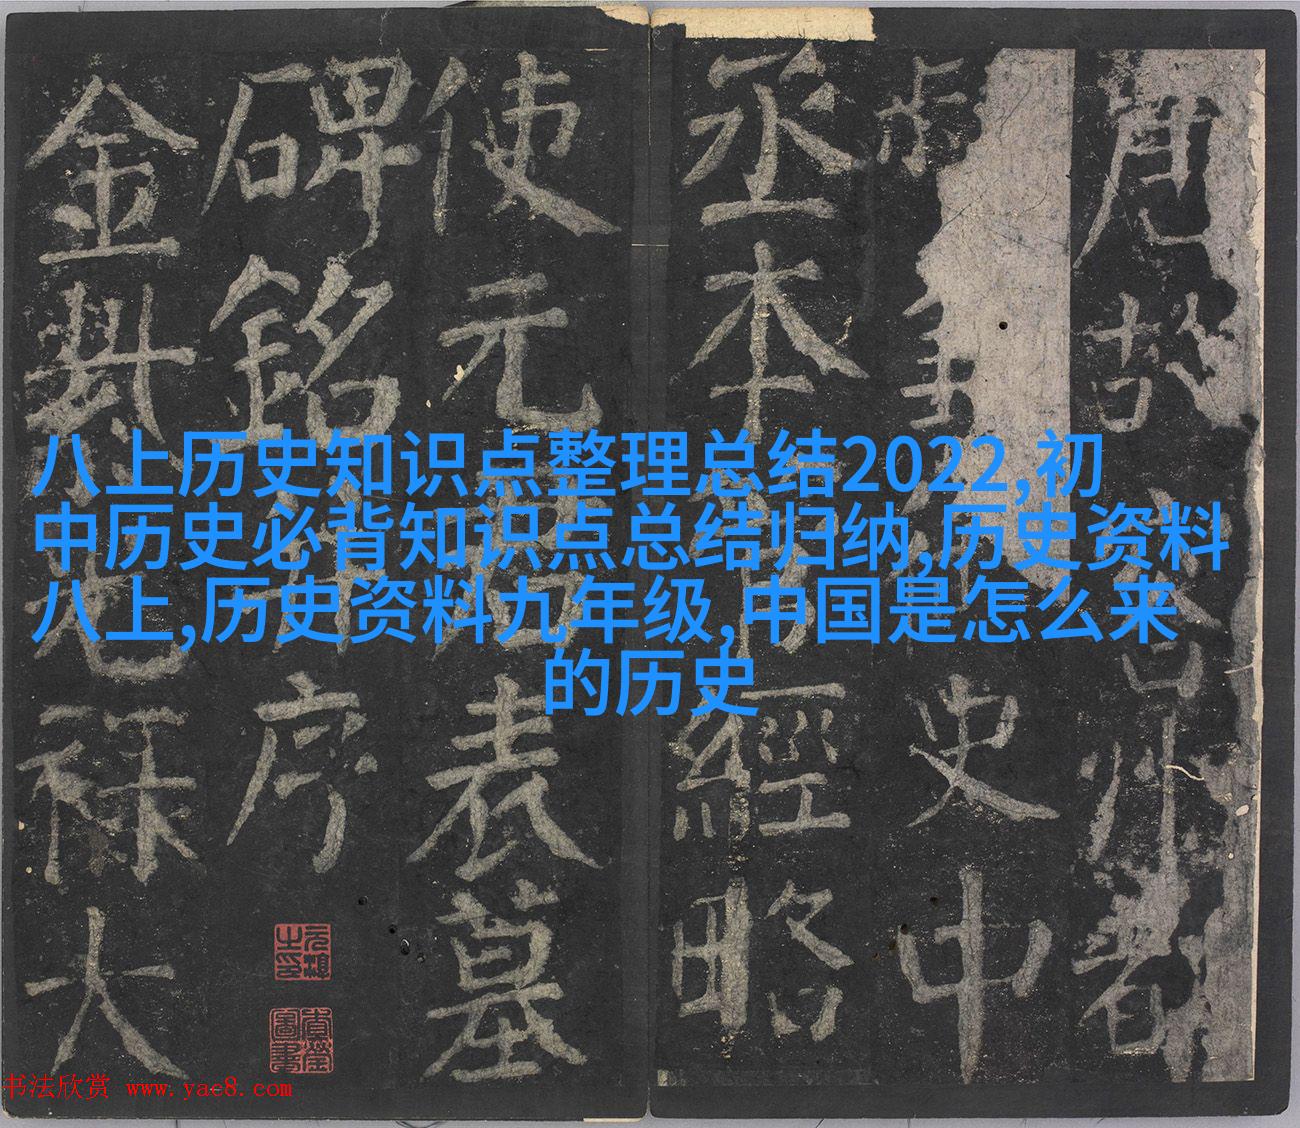 八上历史知识点整理总结2022,初
中历史必背知识点总结归纳,历史资料
八上,历史资料九年级,中国是怎么来
的历史
故容州都
史中
丞本管經略
使元君表墓
碑銘并序
金紫光祿大
书法欣赏 www.yac8.com